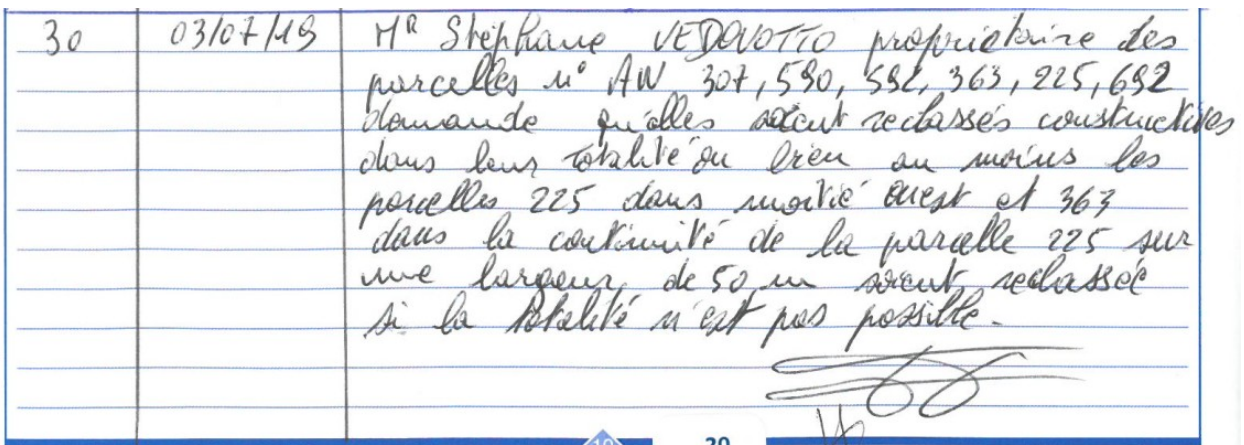 30 03/07/19 MR Stéphane VEDOVOTTO propriétaire des
parcelles n° AW 307, 590, 592, 363, 225, 692
demande qu'elles soient reclassés constructibles
dans leur totalité ou bien au moins les
parcelles 225 dans moitié ouest et 363
dans la continuité de la parcelle 225 sur
une largeur de 50 m soient reclassée
si la totalité n'est pas possible.
10 20